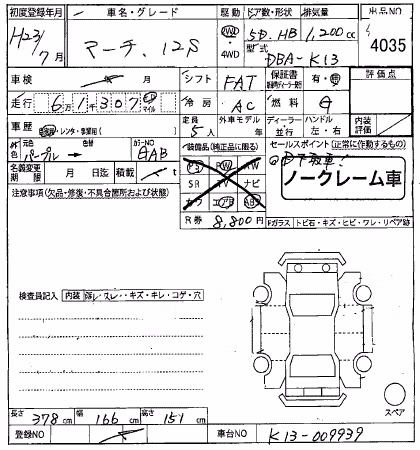 初度登録年月 車名・グレード 駆動 ドア数・形状 排気量 出品NO
H23/7月 マーチ、12S 2WD・4WD 5D HB 1,200cc 4035
型式 DBA-K13
車検 年 月 シフト FAT 保証書 有・無 評価点
走行 6万1千307 マイル 冷房 AC 燃料 G
車歴 自家用・レンタ・事業用( ) 定員 5人 外車モデル 年 ディーラー 並行 ハンドル 左・右 内装評価
色 元色 パープル→ 色替 カラーNO GAB
装備品(純正品に限る) セールスポイント(正常に作動するもの)
名義変更期限 月 日迄 積載 t
PW ナビ
SR TV
エアB
ノークレーム車
注意事項(欠品・修復・不具合箇所および状態)
R券 8,800円
Fガラス トビ石・キズ・ヒビ・ワレ・リペア跡
検査員記入 内装 汚レ・スレ・キズ・キレ・コゲ・穴
スペア
長さ 378cm 幅 166cm 高さ 151cm
登録NO 車台NO K13-009939